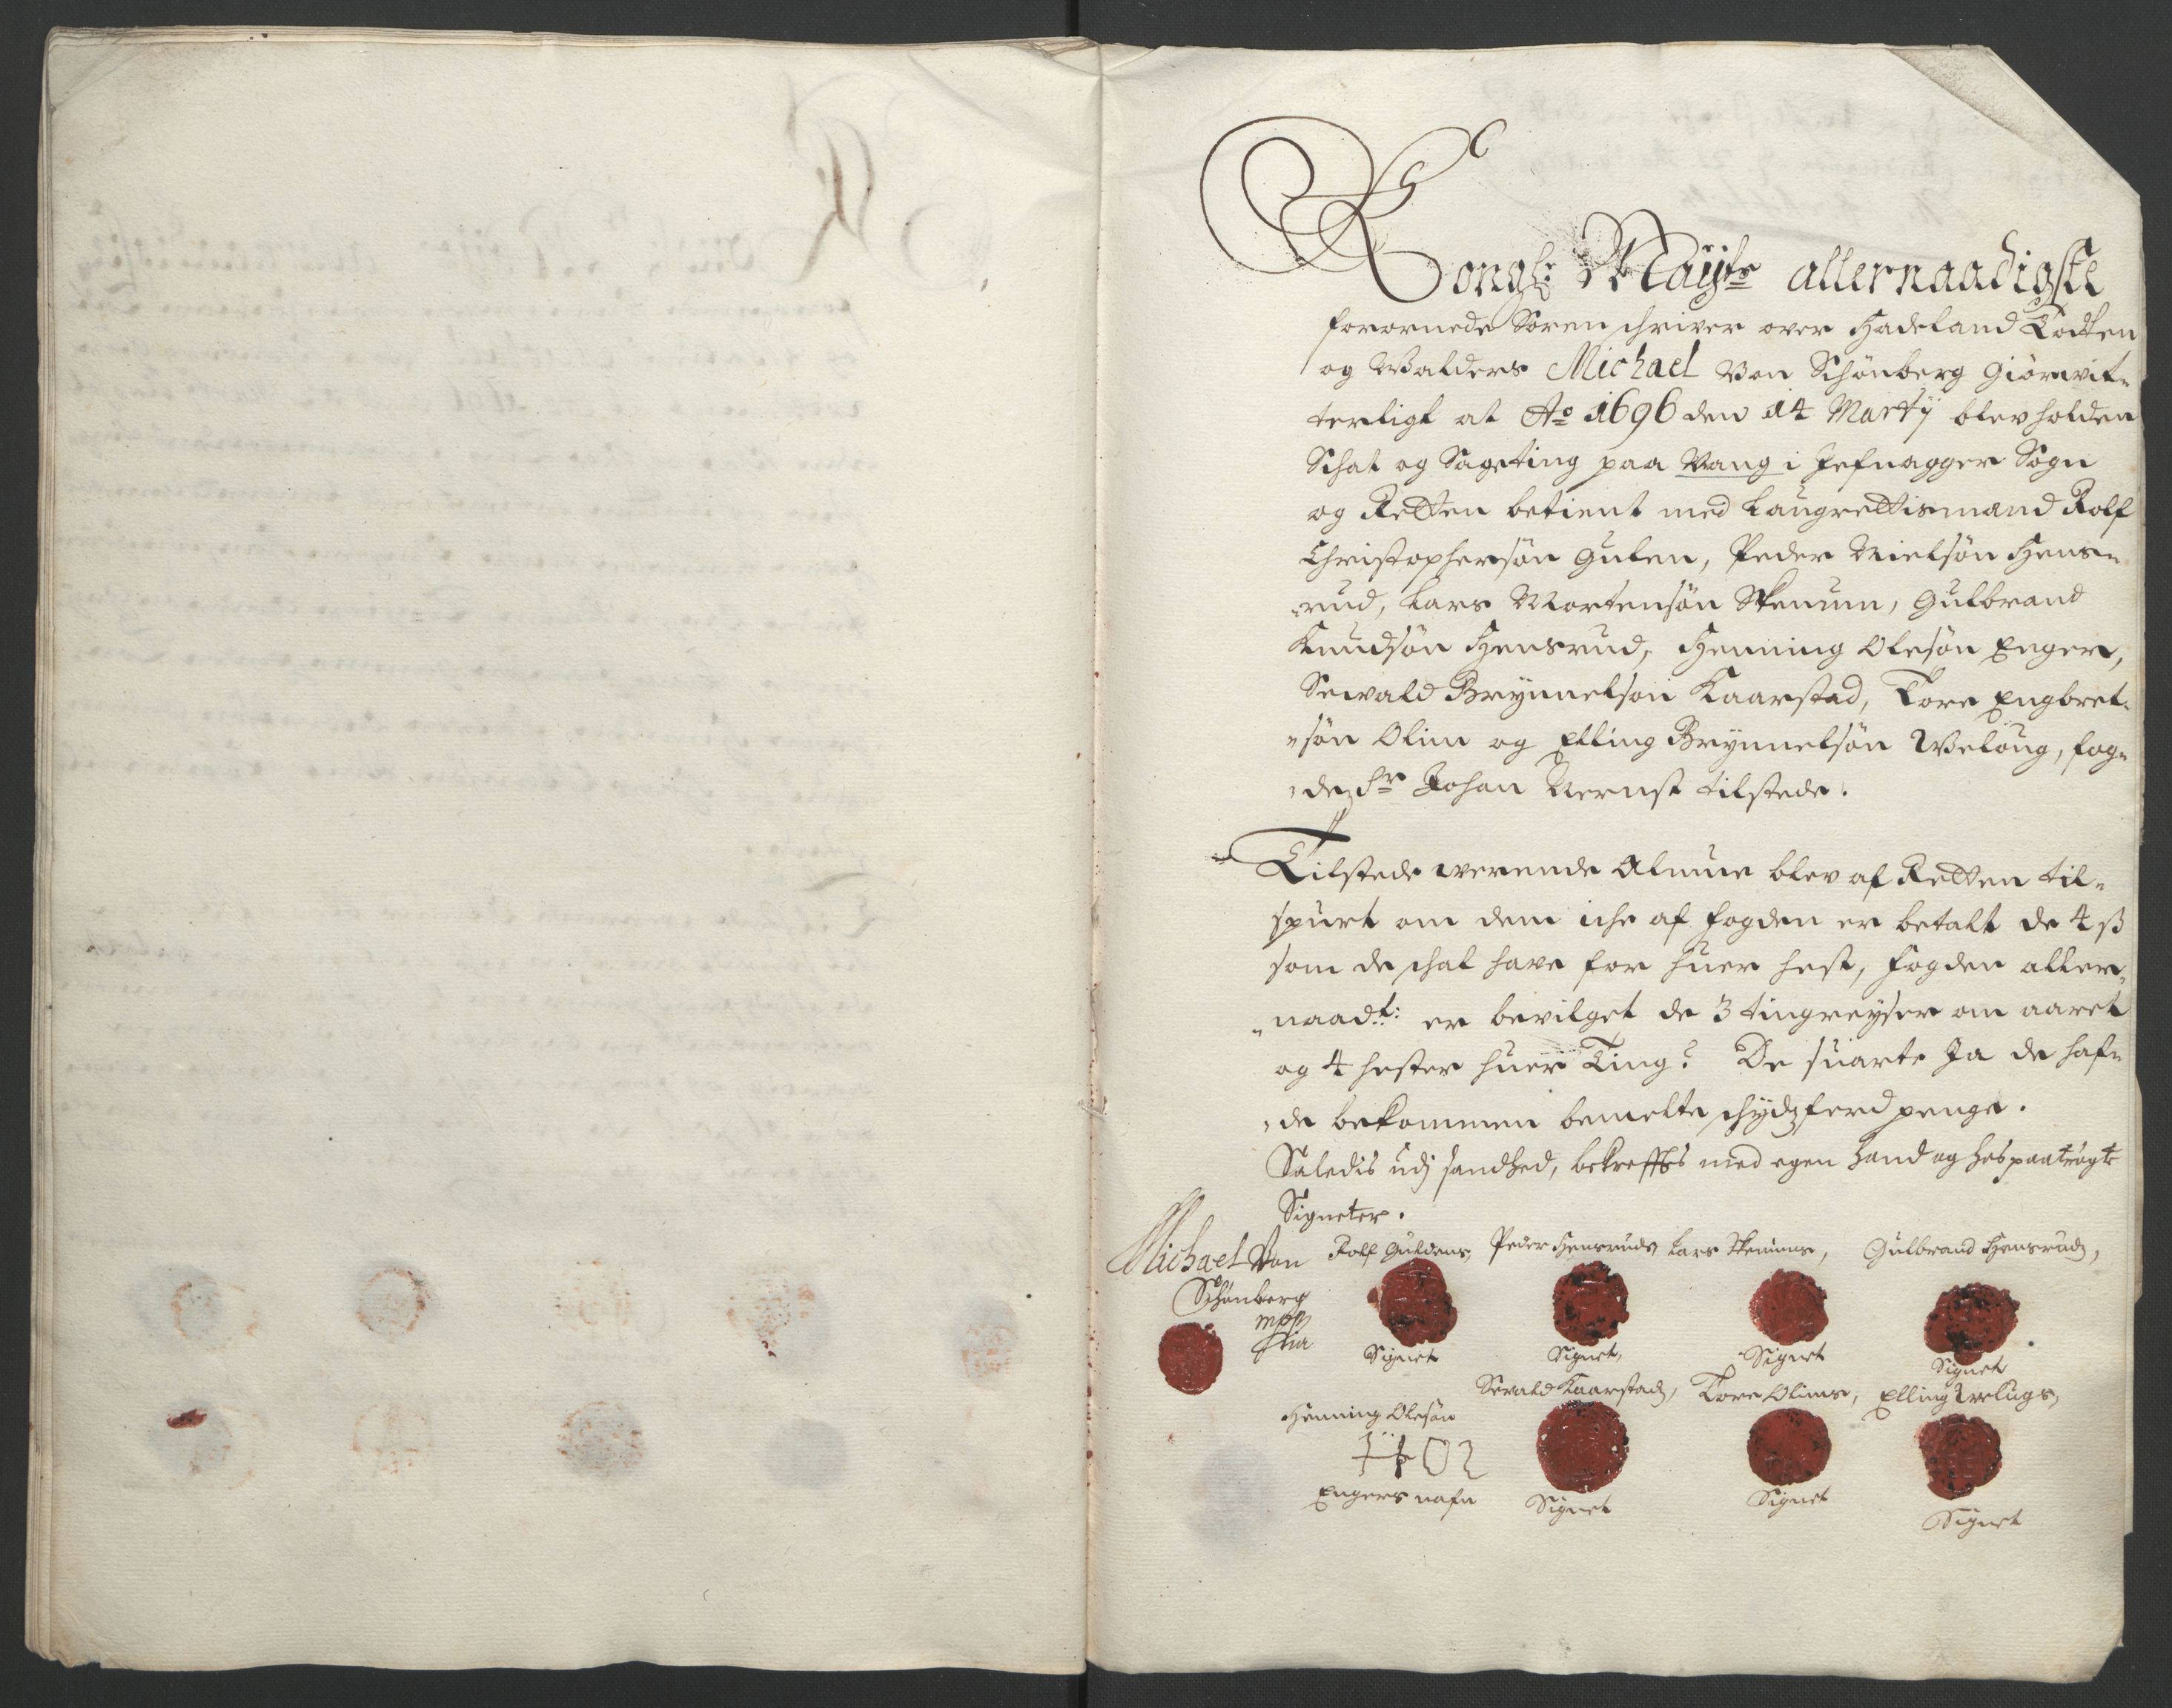 Kongl: Mayts allernaadigste
forornede Soren schriver over Hadeland Todten
og Walders Michael Von Schönberg Giör vit-
terligt at Ao 1696 den 14 Marty blev holden
Schat og Sageting paa Vang i Jefnagger Sogn
og Retten betient med Laugrettismænd Rolf
Christophersön Gulen, Peder Nielsön Hens-
rud, Lars Mortensön Skenum, Gulbrand
Knudsön Hensrud, Henning Olesön Enger,
Sewald Brynnelsön Kaarstad, Tore Engbret-
sön Olim og Elling Brynnelsön Velöug, fog-
den Hr Johan Nernst tilstede.
Tilstede werende Almue blev af Retten til-
spurt om dem iche af fogden er betalt de 4 ß
som de schal have for huer hest, fogden aller-
naadt: er bevilget de 3 tingreyser om aaret
og 4 hester huer Ting? De suarte Ja de haf-
de bekommen bemelte schydzferd penge.
Saledis udj sandhed, bekreffts med egen Hand og hos paatrögte
Signeter.
Michael Von Schönberg mpp ria
Rolf Guldens, Peder Hensruds Lars Skenums, Gulbrand Hensruds,
Signet Signet, Signet Signet
Sevald Kaarstads, Tore Olims, Elling Velugs,
Henning Olesön
HO2
Engers nafn
Signet Signet Signet